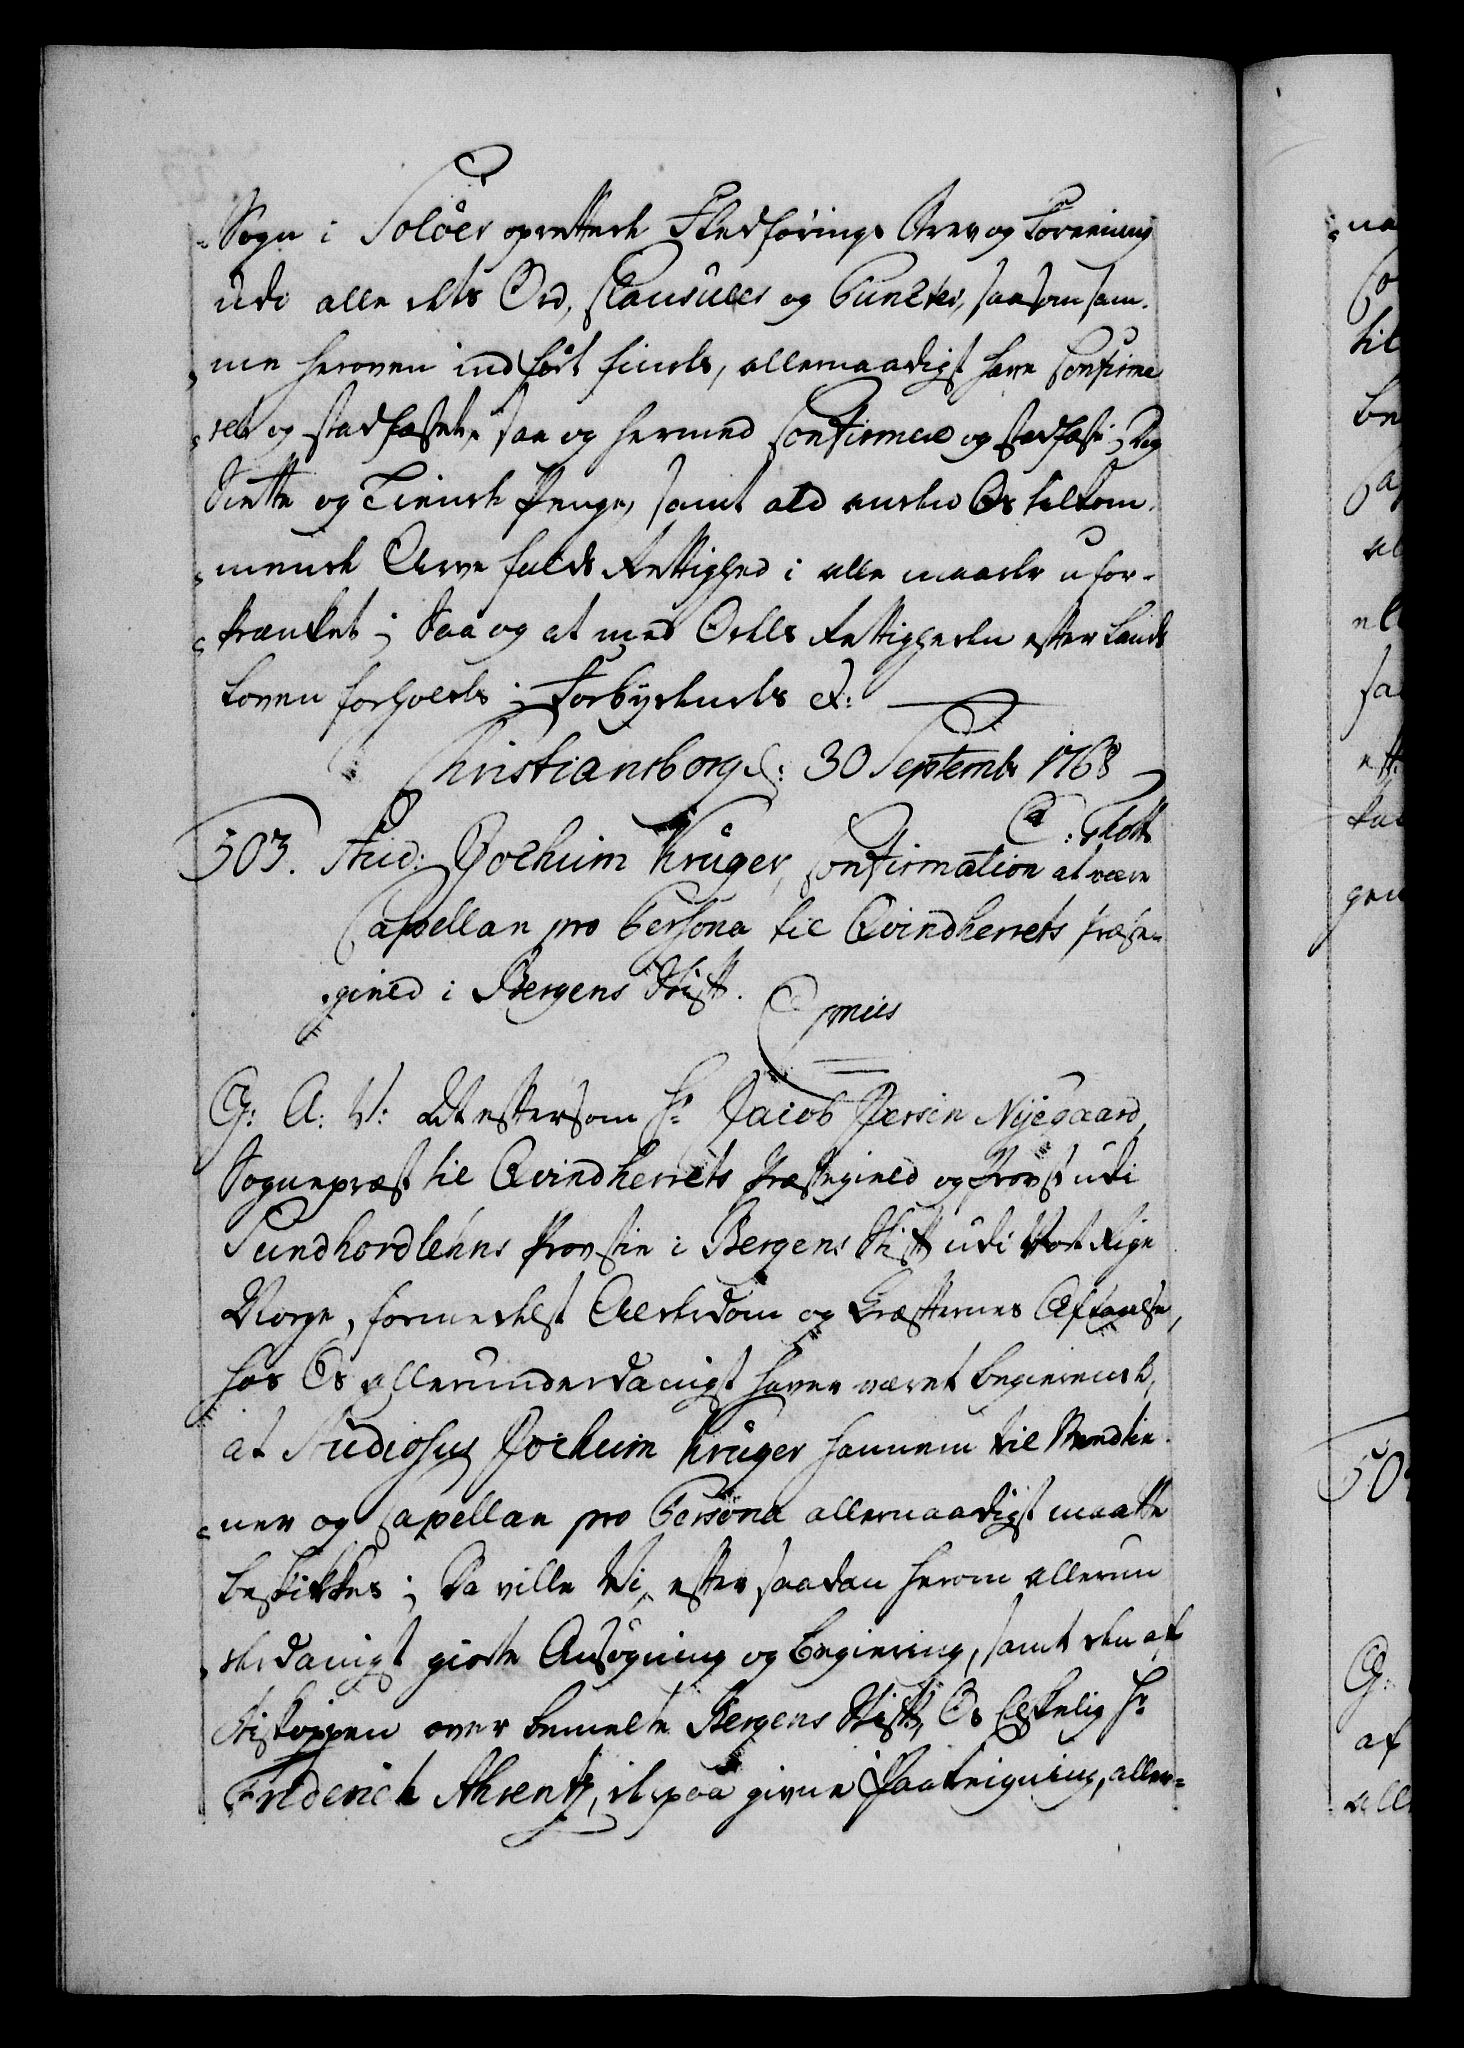 -Sogn i Soløer oprettede Fledførings Brev og Foreening
udi alle dets Ord, Clausuler og Puncter, saasom sam-
-me heroven indført findes, allernaadigst have Confirme
-ret og stadfæstet, saa og hermed Confirmere og stadfæste; Dog
Siette og Tiende Penge, samt ald anden Os tilkom-
-mende Arve falds Rettighed i alle maader ufor-
-krænket; Saa og at med Odels Rettigheden efter Lands
Loven forholdes; Forbydendes &:
Christiansborg d: 30 Septembr 1768
503. Stud: Jochum Krüger, Confirmation at være
Capellan pro Persona til Qvindherrets Præste-
-gield i Bergens Stift.
G: A: V: At eftersom Hr Jacob Jersin Nyegaard,
Sognepræst til Qvindherrets Præstegield og Provst udi
Sundhordlehns Provstie i Bergens Stift udi Vort Rige
Norge, formedelst Alderdom og Kræfternes Aftagelse,
hos Os allerunderdanigst haver været begierende,
at Studiosus Jochum Krüger hannem til Medtie-
-ner og Capellan pro Persona allernaadigst maatte
beskikkes; Da ville Vi, efter saadan herom allerun
-derdanigst giorte Ansøgning og Begiering, samt den af
Biskoppen over bemelte Bergens Stift, Os Elskelig Hr
Friderich Ahrentz, derpaa givne Paategning, aller-